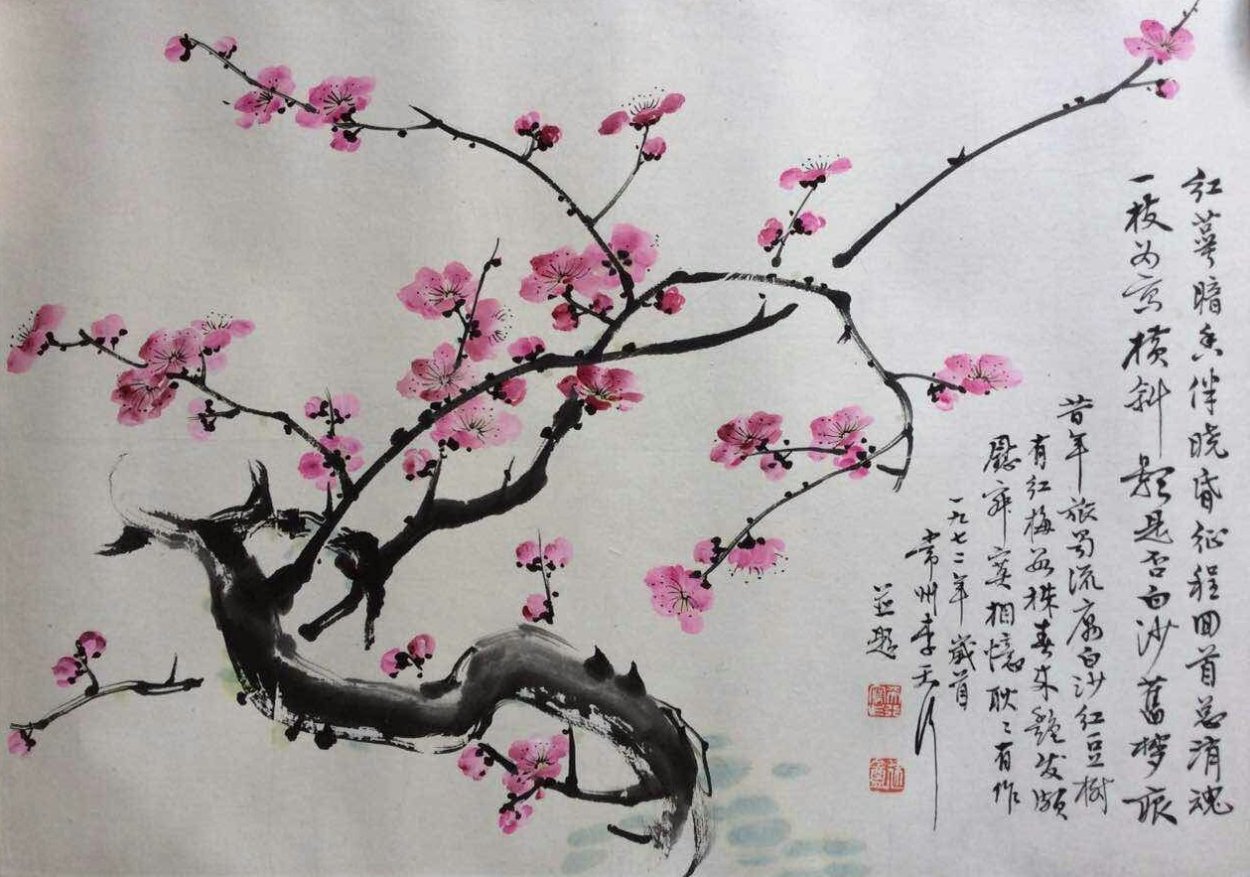 红萼暗香伴晓昏征程回首总消魂
一枝为写横斜影是否白沙旧梦痕
昔年旅蜀流寓白沙红豆树
有红梅数株春来艳发颇
慰寂寞相忆耿耿有作
一九七二年岁首
常州李天行
并题